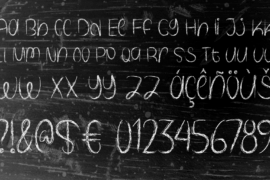 Bb Cc Dd Ee Ff Gg Hh Ii Jj
Mm Nn Oo Pp Qq Rr Ss Tt Uu
Ww Xx Yy Zz áçêñöùš
?!&@$ € 0123456789